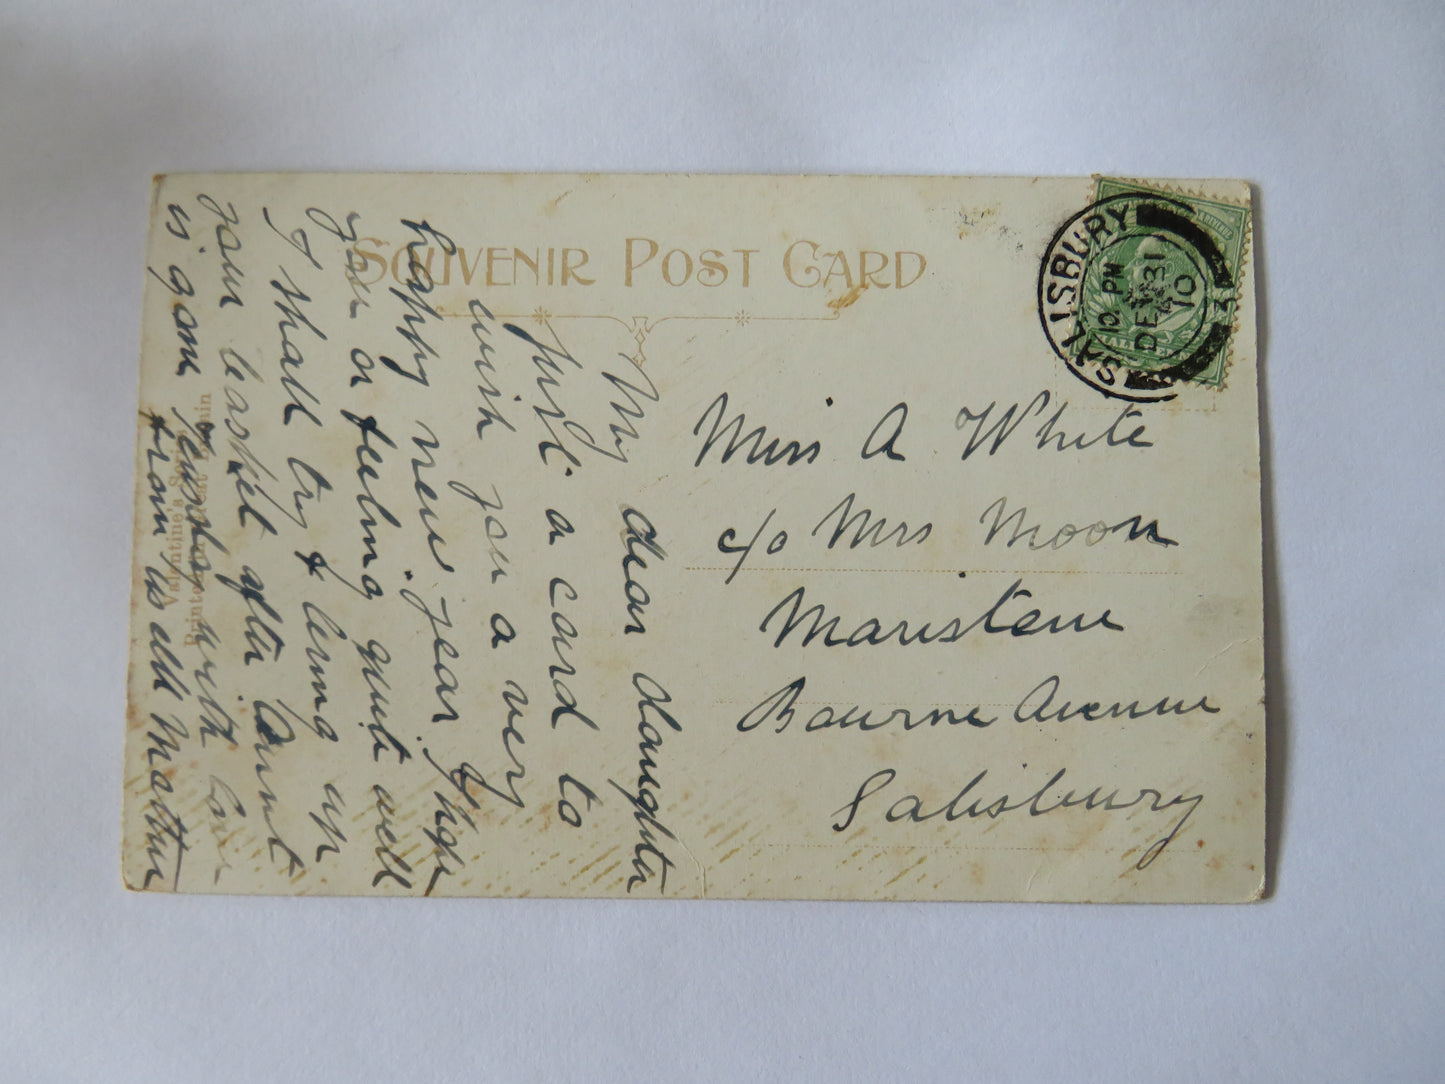 SOUVENIR POST CARD
SALISBURY
10 PM
DE 31
10
Miss A White
c/o Mrs Moon
Bourne Avenue
Salisbury
My dear daughter
Just a card to
wish you a very
happy new year I hope
you are feeling quite well
I shall try &
your basket after
is gone with love
from us all Mother
Valentine's Series
Printed in Great Britain